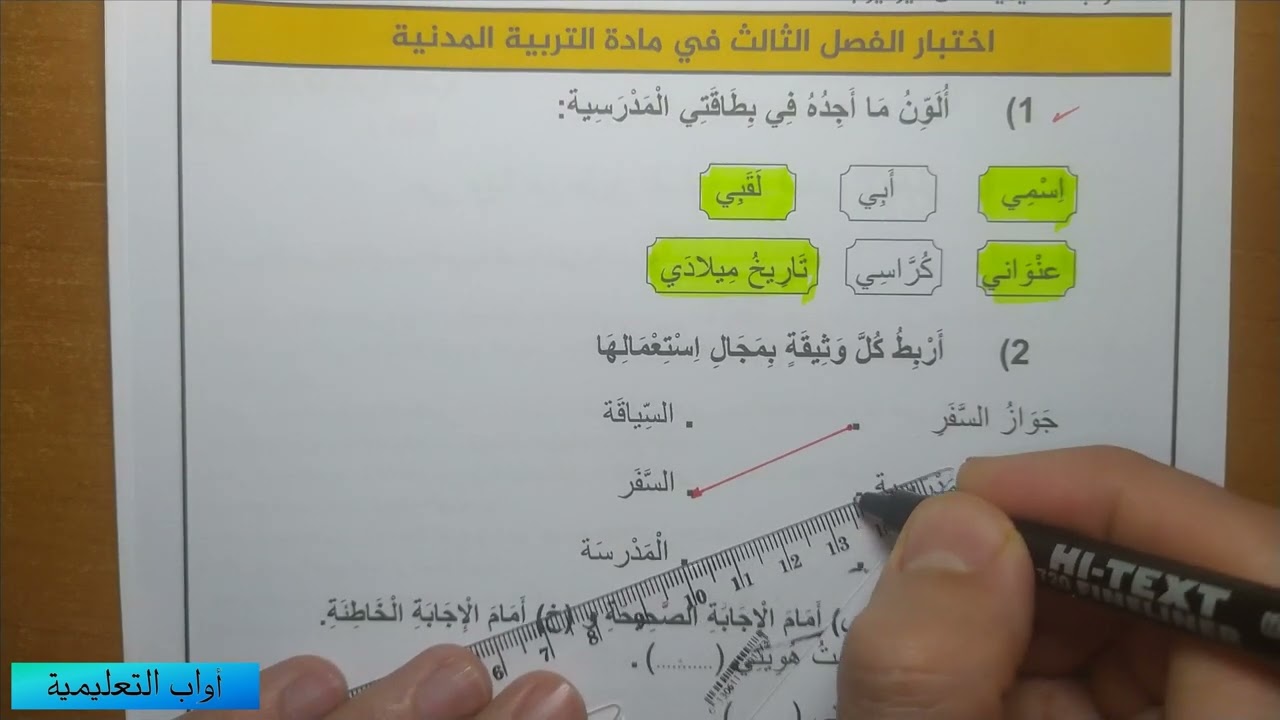 اختبار الفصل الثالث في مادة التربية المدنية
1) أُلَوِّنُ مَا أَجِدُهُ فِي بِطَاقَتِي الْمَدْرَسِية:
اِسْمِي أَبِي لَقَبِي
عنْوَاني كُرَّاسِي تَارِيخُ مِيلادَي
2) أَرْبِطُ كُلَّ وَثِيقَةٍ بِمَجَالِ اِسْتِعْمَالِهَا
جَوَازُ السَّفَرِ السِّياقَة
السَّفَر
الْمَدْرسَة
أَمَامَ الْإِجَابَةِ الصَّحِيحَةِ و (خ) أَمَامَ الْإِجَابَةِ الْخَاطِئَةِ.
هُويَّتِي (..........) .
6 7 8 9 10 11 12 13
HI-TEXT
FINELINER
أواب التعليمية